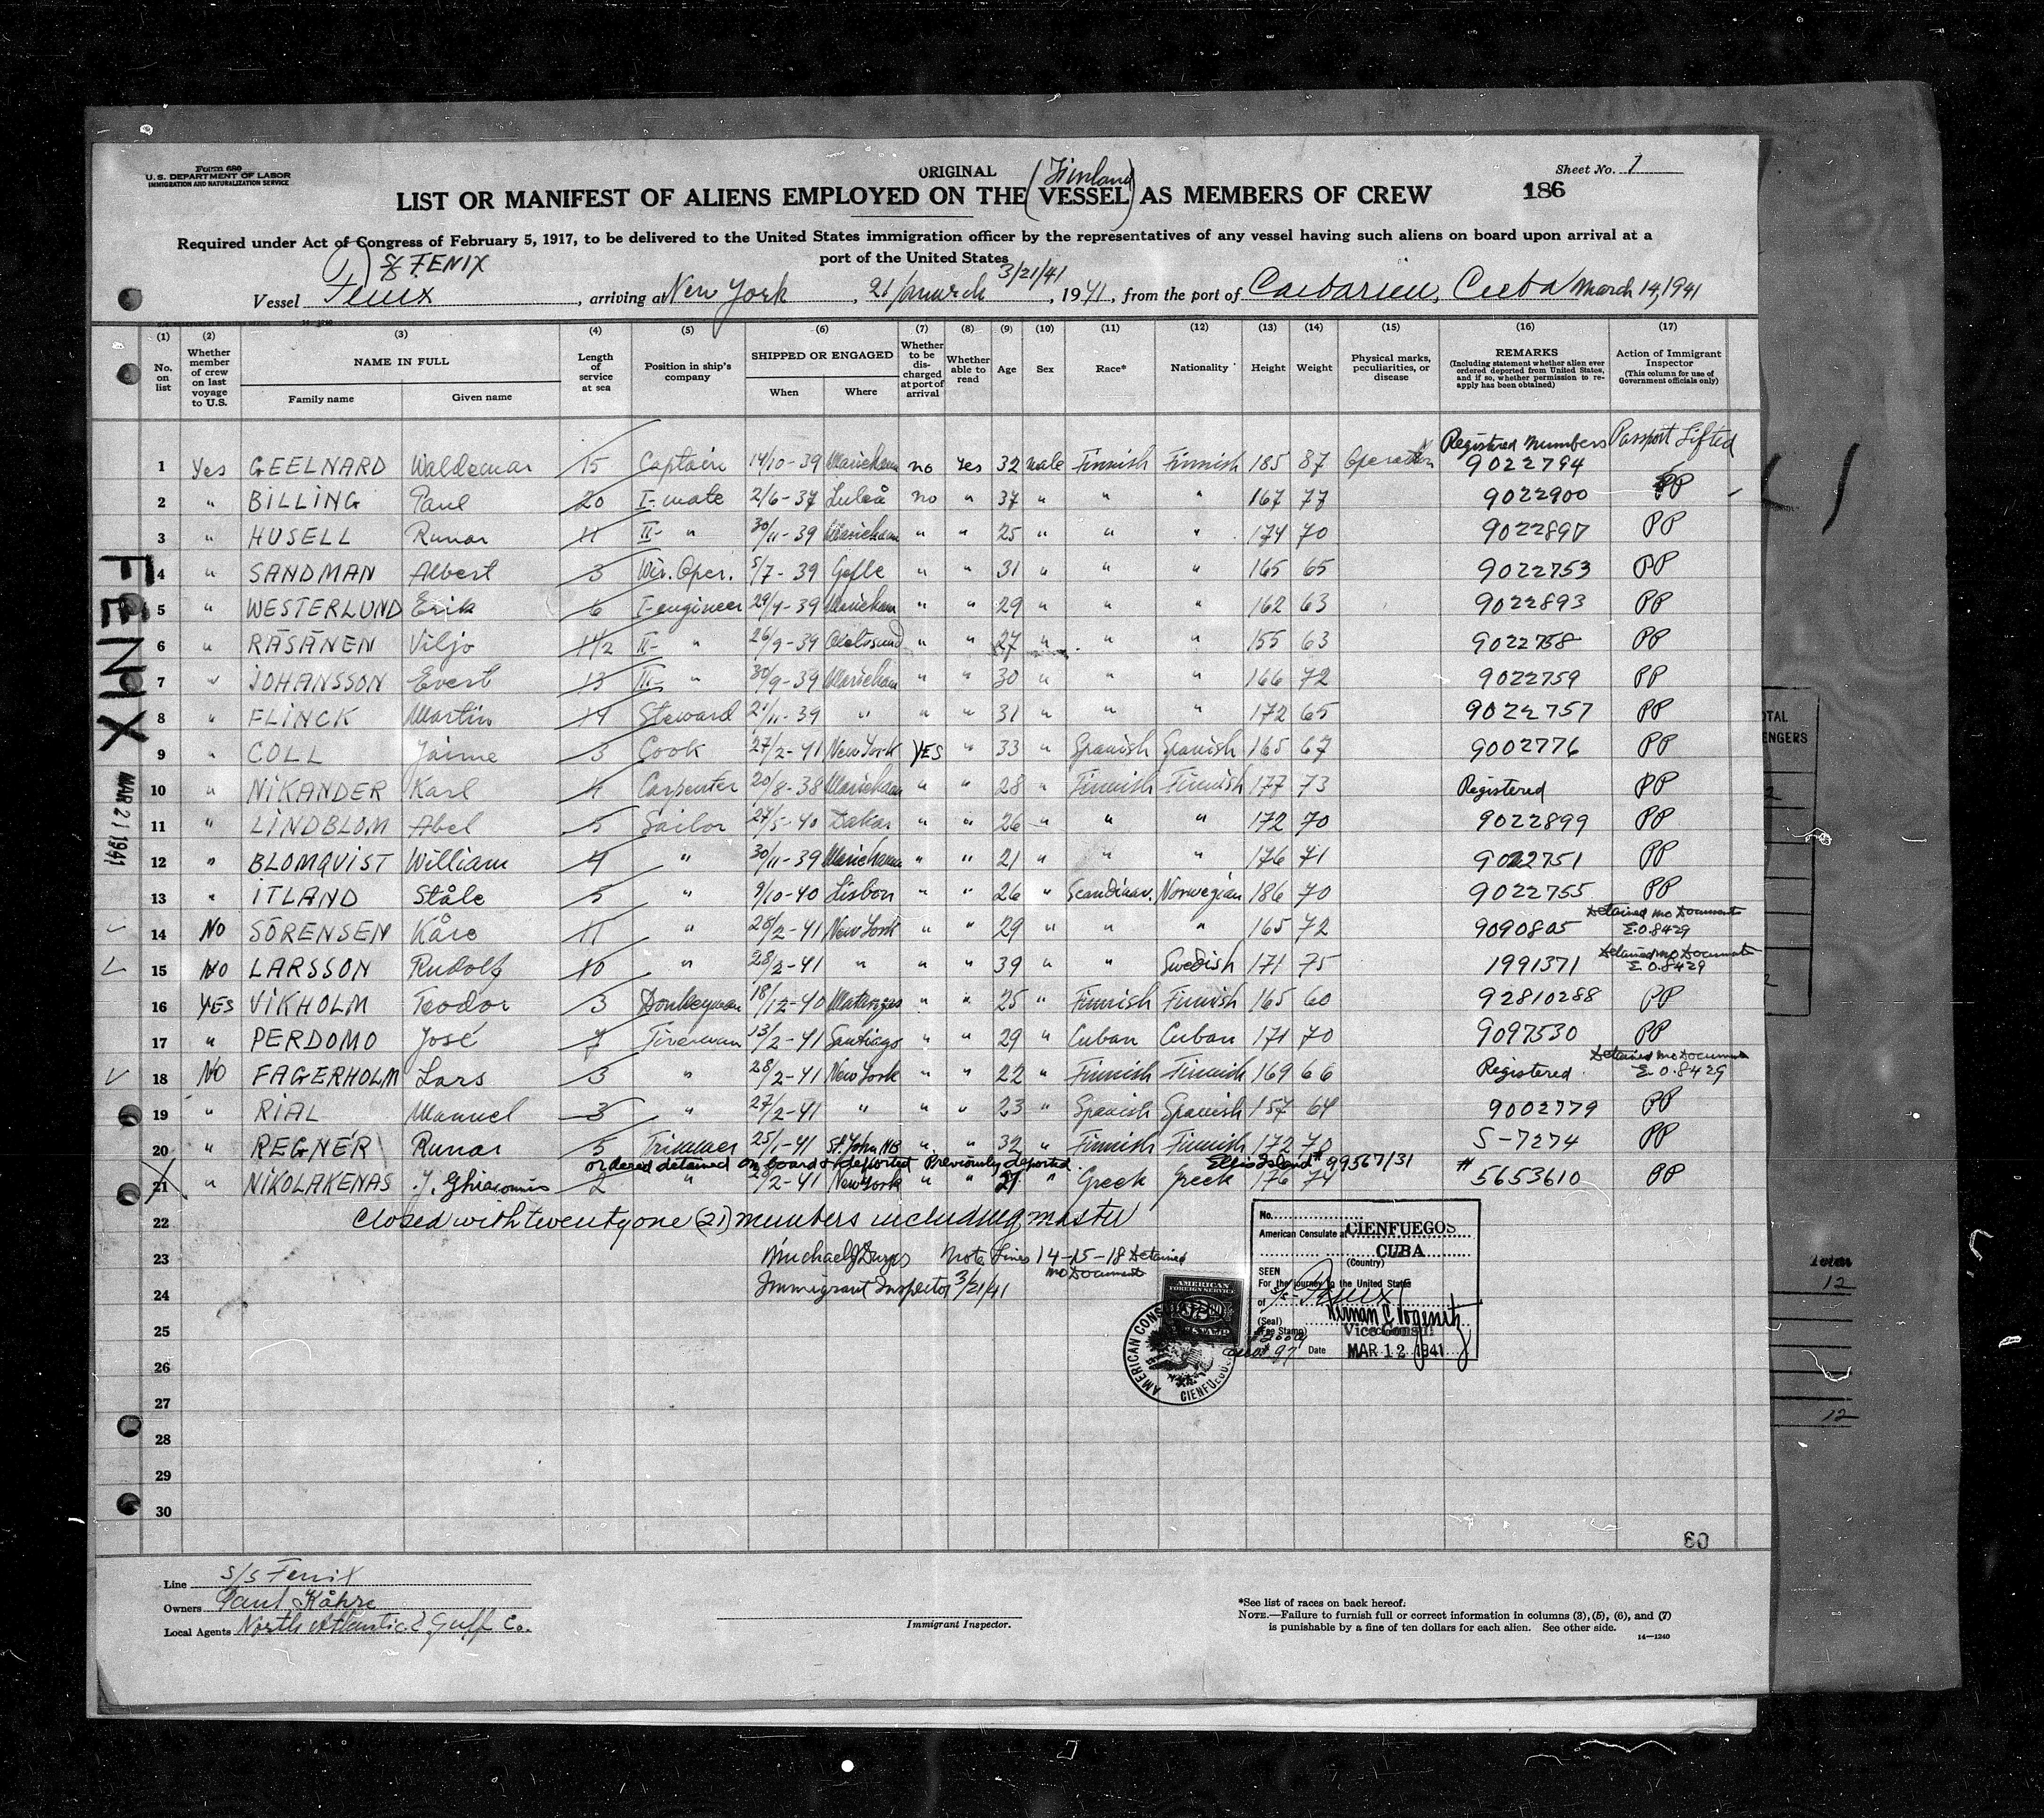 Form 680
U.S. DEPARTMENT OF LABOR
IMMIGRATION AND NATURALIZATION SERVICE
ORIGINAL
(Finland)
Sheet No. 1
LIST OR MANIFEST OF ALIENS EMPLOYED ON THE VESSEL AS MEMBERS OF CREW
186
Required under Act of Congress of February 5, 1917, to be delivered to the United States immigration officer by the representatives of any vessel having such aliens on board upon arrival at a
port of the United States
S/S FENIX
3/21/41
Vessel Fenix, arriving at New York, 21/march, 1941, from the port of Caibarien, Cuba March 14, 1941
(1) (2) (3) (4) (5) (6) (7) (8) (9) (10) (11) (12) (13) (14) (15) (16) (17)
No. on list
Whether member of crew on last voyage to U.S.
NAME IN FULL
Family name
Given name
Length of service at sea
Position in ship's company
SHIPPED OR ENGAGED
When
Where
Whether to be discharged at port of arrival
Whether able to read
Age
Sex
Race*
Nationality
Height
Weight
Physical marks, peculiarities, or disease
REMARKS
(Including statement whether alien ever ordered deported from United States, and if so, whether permission to reapply has been obtained)
Action of Immigrant Inspector
(This column for use of Government officials only)
Registered numbers Passport Lifted
1 Yes GEELNARD Waldemar 15 Captain 14/10-39 Mariehamn no Yes 32 male Finnish Finnish 185 87 Operation 9022794
2 " BILLING Paul 20 I-mate 2/6-37 Luleå no " 37 " " " 167 77 9022900 PP
3 " HUSELL Runar 11 II- " 30/11-39 Mariehamn " " 25 " " " 174 70 9022897 PP
4 " SANDMAN Albert 3 Wir. Oper. 5/7-39 Gefle " " 31 " " " 165 65 9022753 PP
5 " WESTERLUND Erik 6 I-engineer 29/9-39 Mariehamn " " 29 " " " 162 63 9022893 PP
6 " RÄSÄNEN Viljo 1 1/2 II- " 26/9-39 Oxelosund " " 27 " " " 155 63 9022758 PP
7 " JOHANSSON Evert 13 III- " 30/9-39 Mariehamn " " 30 " " " 166 72 9022759 PP
8 " FLINCK Martin 14 Steward 2/11-39 " " " 31 " " " 172 65 9022757 PP
9 " COLL Jaime 3 Cook 27/2-41 New York YES " 33 " Spanish Spanish 165 67 9002776 PP
10 " NIKANDER Karl 4 Carpenter 20/8-38 Mariehamn " " 28 " Finnish Finnish 177 73 Registered PP
11 " LINDBLOM Abel 5 Sailor 27/5-40 Dakar " " 26 " " " 172 70 9022899 PP
12 " BLOMQVIST William 4 " 30/11-39 Mariehamn " " 21 " " " 176 71 9022751 PP
13 " ITLAND Ståle 5 " 9/10-40 Lisbon " " 26 " Scandinav. Norwegian 186 70 9022755 PP
14 NO SÖRENSEN Kåre 11 " 28/2-41 New York " " 29 " " " 165 72 9090805 Detained no Document E.O. 8429
15 NO LARSSON Rudolf 10 " 28/2-41 " " " 39 " " Swedish 171 75 1991371 Detained no Document E.O. 8429
16 YES VIKHOLM Teodor 3 Donkeyman 18/12-40 Matanzas " " 25 " Finnish Finnish 165 60 92810288 PP
17 " PERDOMO José 7 Fireman 13/2-41 Santiago " " 29 " Cuban Cuban 171 70 9097530 PP
18 NO FAGERHOLM Lars 3 " 28/2-41 New York " " 22 " Finnish Finnish 169 66 Registered Detained no Document E.O. 8429
19 " RIAL Manuel 3 " 27/2-41 " " " 23 " Spanish Spanish 157 64 9002779 PP
20 " REGNÉR Runar 5 Trimmer 25/1-41 St. John NB " " 32 " Finnish Finnish 172 70 S-7274 PP
ordered detained on board & deported Previously deported. Ellis Island # 99567/31
21 " NIKOLAKENAS J. Ghiacomis 2 " 28/2-41 New York " " 21 " Greek Greek 176 74 #5653610 PP
22 Closed with twentyone (21) members including master
23 Note Lines 14-15-18 Detained
no Document
24 Immigrant Inspector 3/21/41
25
26
27
28
29
30
FENIX
MAR 21 1941
No.
American Consulate at CIENFUEGOS
CUBA
(Country)
SEEN
For the journey to the United States
of S/S- Fenix
(Seal)
(Fee Stamp)
Vice Consul
Date MAR 12 1941
AMERICAN
FOREIGN SERVICE
AMERICAN CONSULATE
CIENFUEGOS
60
Line S/S Fenix
Owners Paul Kåhre
Local Agents North Atlantic & Gulf Co.
Immigrant Inspector.
*See list of races on back hereof.
NOTE.—Failure to furnish full or correct information in columns (3), (5), (6), and (7)
is punishable by a fine of ten dollars for each alien. See other side.
14—1240
12
12